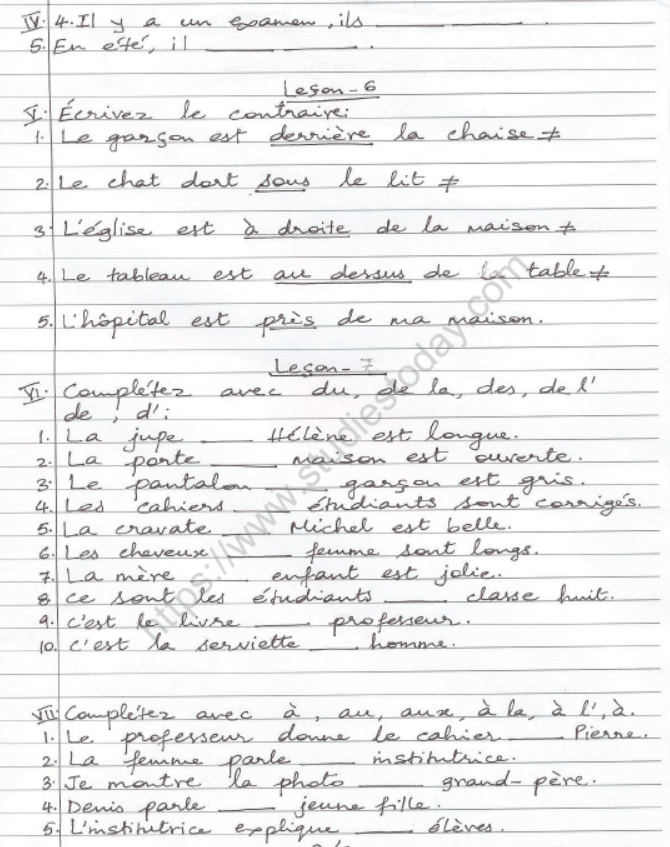 IV. 4. Il y a un examen, ils ______ ______.
5. En été, il ______ ______.
Leçon-6
V. Écrivez le contraire:
1. Le garçon est derrière la chaise ≠
2. Le chat dort sous le lit ≠
3. L'église est à droite de la maison ≠
4. Le tableau est au dessus de la table ≠
5. L'hôpital est près de ma maison.
Leçon-7
VI. Complétez avec du, de la, des, de l'
de, d':
1. La jupe ____ Hélène est longue.
2. La porte ____ maison est ouverte.
3. Le pantalon ____ garçon est gris.
4. Les cahiers ____ étudiants sont corrigés.
5. La cravate ____ Michel est belle.
6. Les cheveux ____ femme sont longs.
7. La mère ____ enfant est jolie.
8 Ce sont les étudiants ____ classe huit.
9. C'est le livre ____ professeur.
10. C'est la serviette ____ homme.
VII. Complétez avec à, au, aux, à la, à l', à.
1. Le professeur donne le cahier ____ Pierre.
2. La femme parle ____ institutrice.
3. Je montre la photo ____ grand-père.
4. Denis parle ____ jeune fille.
5. L'institutrice explique ____ élèves.
https://www.studiestoday.com